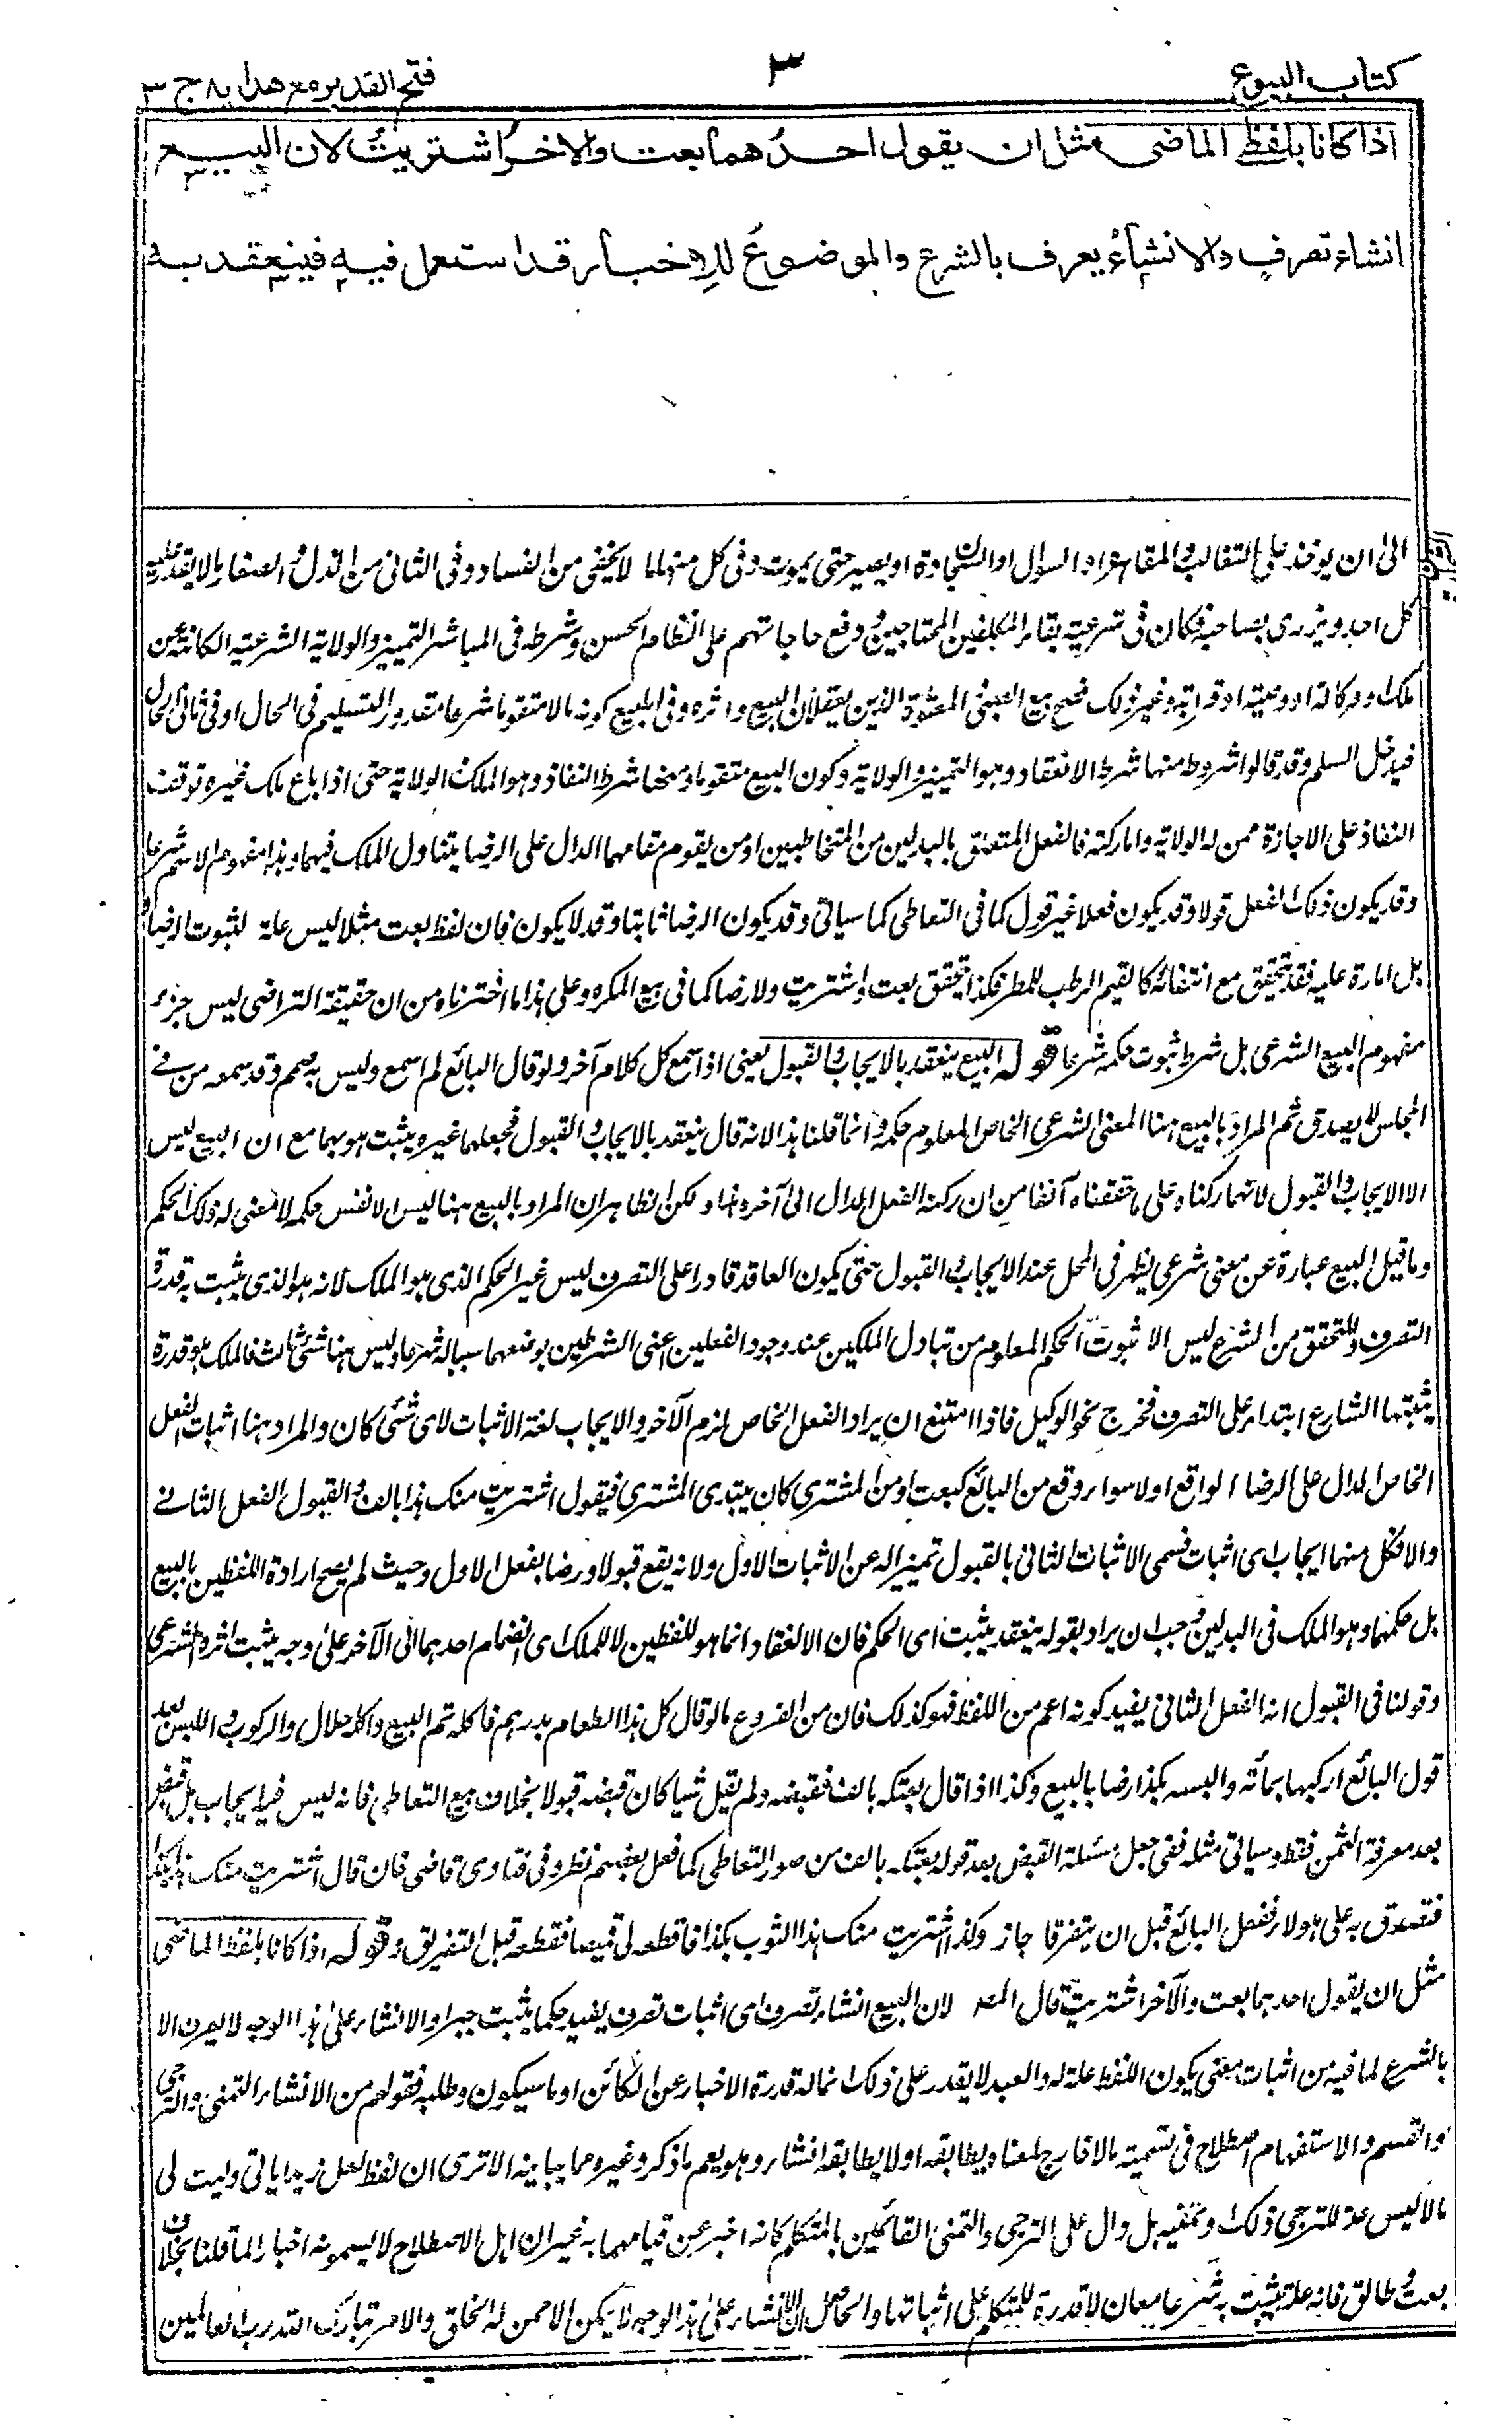 كتاب البيوع
٣
فتح القدير مع هدايه ج ٣
اذا كانا بلفظ الماضى مثل ان يقول احدهما بعت والاخر اشتريت لان البيع
انشاء تصرف والانشاء يعرف بالشرع والموضوع للاخبار قد استعمل فيه فينعقد به
الى ان يوخذ على التغالب والمقاهرة او السوال او الشحاذة او يصبر حتى يموت وفى كل منها ما لا يخفى من الفساد وفى الثانى من الذل والصغار ما لا يقدر عليه
كل احد ويزرى بصاحبه فكان فى شرعيته بقاء المكلفين المحتاجين ودفع حاجاتهم على النظام الحسن وشرطه فى المباشر التمييز والولاية الشرعية الكائنة عن
ملك او وكالة او وصية او قرابة وغير ذلك فصح بيع الصبى والمعتوه الذين يعقلان البيع واثره وفى المبيع كونه مالا متقوما شرعا مقدور التسليم فى الحال او فى ثانى الحال
فيدخل السلم وقد قالوا شروط منها شرط الانعقاد وهو التمييز والولاية وكون المبيع متقوما ومنها شرط النفاذ وهو الملك والولاية حتى اذا باع ملك غيره توقف
النفاذ على الاجازة ممن له الولاية واما ركنه فالفعل المتعلق بالبدلين من المتخاطبين او من يقوم مقامهما الدال على الرضا بتناول الملك فيهما وهذا مفهوم الاسم شرعا
وقد يكون ذلك الفعل قولا وقد يكون فعلا غير قول كما فى التعاطى كما سياتى وقد يكون الرضا ثابتا وقد لا يكون فان لفظ بعت مثلا ليس علة لثبوت الرضا
بل امارة عليه فقد تتحقق مع انتفائه كالغيم الرطب للمطر فكذا يتحقق بعت واشتريت ولا رضا كما فى بيع المكره وعلى هذا ما اخترناه من ان حقيقة التراضى ليس جزء
مفهوم البيع الشرعى بل شرط ثبوت حكمه شرعا قوله البيع ينعقد بالايجاب والقبول يعنى اذا سمع كل كلام آخر ولو قال البائع لم اسمع وليس به صمم وقد سمعه من فى
المجلس لا يصدق ثم المراد بالبيع هنا المعنى الشرعى الخاص المعلوم حكمه وانما قلنا هذا لانه قال ينعقد بالايجاب والقبول فجعلهما غيره يثبت هو بهما مع ان البيع ليس
الا الايجاب والقبول لانهما ركناه على ما حققناه آنفا من ان ركنه الفعل الدال الى آخره لكن الظاهر ان المراد بالبيع هنا ليس الا نفس حكمه لا معنى له ذلك الحكم
وما قيل البيع عبارة عن معنى شرعى يظهر فى المحل عند الايجاب والقبول حتى يكون العاقد قادرا على التصرف ليس غير الحكم الذى هو الملك لانه هو الذى يثبت به قدرة
التصرف والمتحقق من الشرع ليس الا ثبوت الحكم المعلوم من تبادل الملكين عند وجود الفعلين اعنى الشرطين بوضعهما سببا له شرعا وليس هنا شئ ثالث فالملك هو قدرة
يثبتها الشارع ابتداء على التصرف فخرج نحو الوكيل فاذا امتنع ان يراد الفعل الخاص لزم الآخر والايجاب لغة الاثبات لاى شئ كان والمراد هنا اثبات الفعل
الخاص الدال على الرضا الواقع اولا سواء وقع من البائع كبعت او من المشترى كان يبتدى المشترى فيقول اشتريت منك هذا بالف والقبول الفعل الثانى
والا فكل منهما ايجاب اى اثبات فسمى الاثبات الثانى بالقبول تمييزا له عن الاثبات الاول ولانه يقع قبولا ورضا بفعل الاول وحيث لم يصح ارادة اللفظين بالبيع
بل حكمهما وهو الملك فى البدلين وجب ان يراد بقوله ينعقد يثبت اى الحكم فان الانعقاد انما هو للفظين لا للملك اى انضمام احدهما الى الآخر على وجه يثبت اثره الشرعى
وقولنا فى القبول انه الفعل الثانى يفيد كونه اعم من اللفظ فهو كذلك فان من الفروع ما لو قال كل هذا الطعام بدرهم فاكله تم البيع واكله حلال والركوب واللبس بعد
قول البائع اركبها بمائة والبسه بكذا رضا بالبيع وكذا اذا قال بعتكه بالف فقبضه ولم يقل شيا كان قبضه قبولا بخلاف بيع التعاطى فانه ليس فيه ايجاب بل قبض
بعد معرفة الثمن فقط وسياتى مثله ففى جعل مسئلة القبض بعد قوله بعتكه بالف من صور التعاطى كما فعل بعضهم نظر وفى فتاوى قاضى فان قال اشتريت منك هذا بكذا
فتصدق به على هولاء ففعل البائع قبل ان يتفرقا جاز وكذا اشتريت منك هذا الثوب بكذا فاقطعه لى قميصا فقطعه قبل التفريق وقوله اذا كانا بلفظ الماضى
مثل ان يقول احدهما بعت والآخر اشتريت قال المصـ لان البيع انشاء تصرف اى اثبات تصرف يفيد حكما يثبت جبرا والانشاء على هذا الوجه لا يعرف الا
بالشرع لما فيه من اثبات معنى يكون اللفظ علة له والعبد لا يقدر على ذلك انما له قدرة الاخبار عن الكائن او ما سيكون وطلبه فقولهم من الانشاء التمنى والترجى
والقسم والاستفهام اصطلاح فى تسمية ما لا خارج لمعناه يطابقه او لا يطابقه انشاء وهو يعم ما ذكر وغيره مما يباينه الا ترى ان لفظ لعل زيدا ياتى وليت لى
مالا ليس علة لترجى ذلك وتمنيه بل دال على الترجى والتمنى القائمين بالمتكلم كانه اخبر عن قيامهما به غير ان اهل الاصطلاح لا يسمونه اخبارا لما قلنا بخلاف
بعت وطالق فانه علة يثبت به شرعا معان لا قدرة للمتكلم على اثباتها والحاصل ان الانشاء على هذا الوجه لا يمكن الا ممن له الخلق والامر تبارك الله رب العالمين